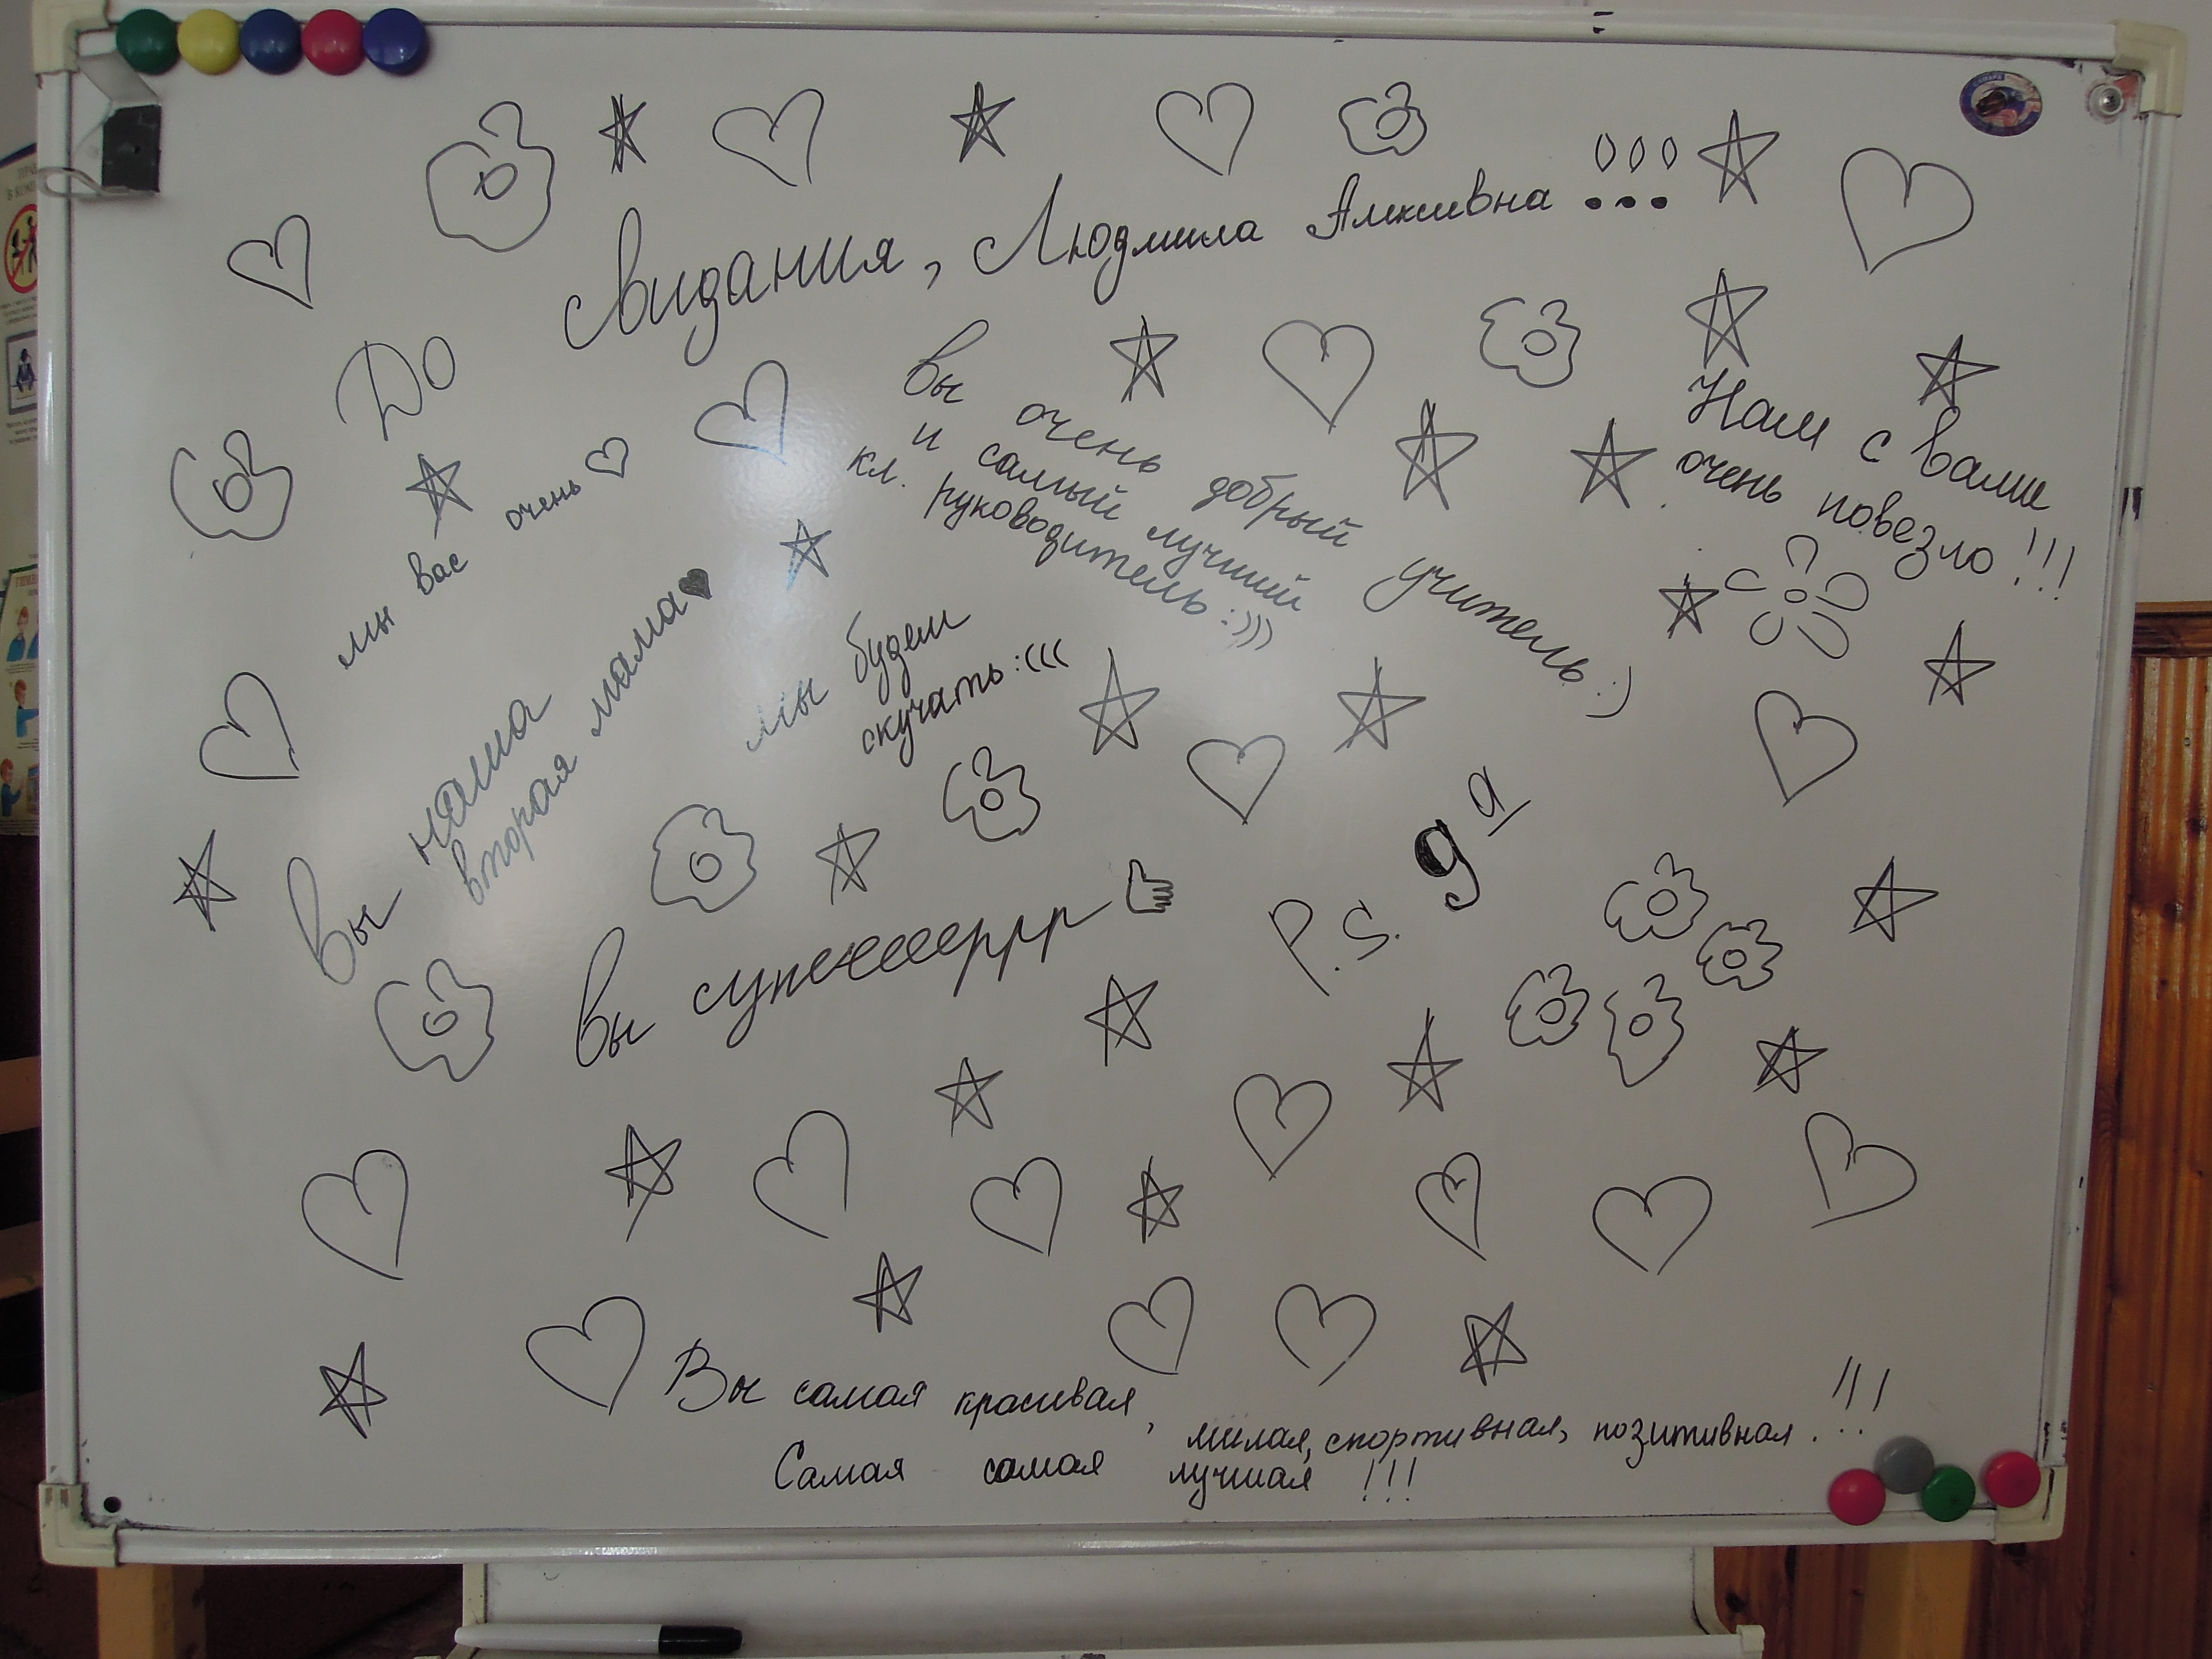 До свидания, Людмила Алексеевна !!!
мы вас очень
вы очень добрый учитель :)
и самый лучший
кл. руководитель :)))
Нам с вами
очень повезло !!!
Вы наша
вторая мама
мы будем
скучать :(((
вы супеееееррр
P.S. 9а
Вы самая красивая, милая, спортивная, позитивная !!!
Самая самая лучшая !!!